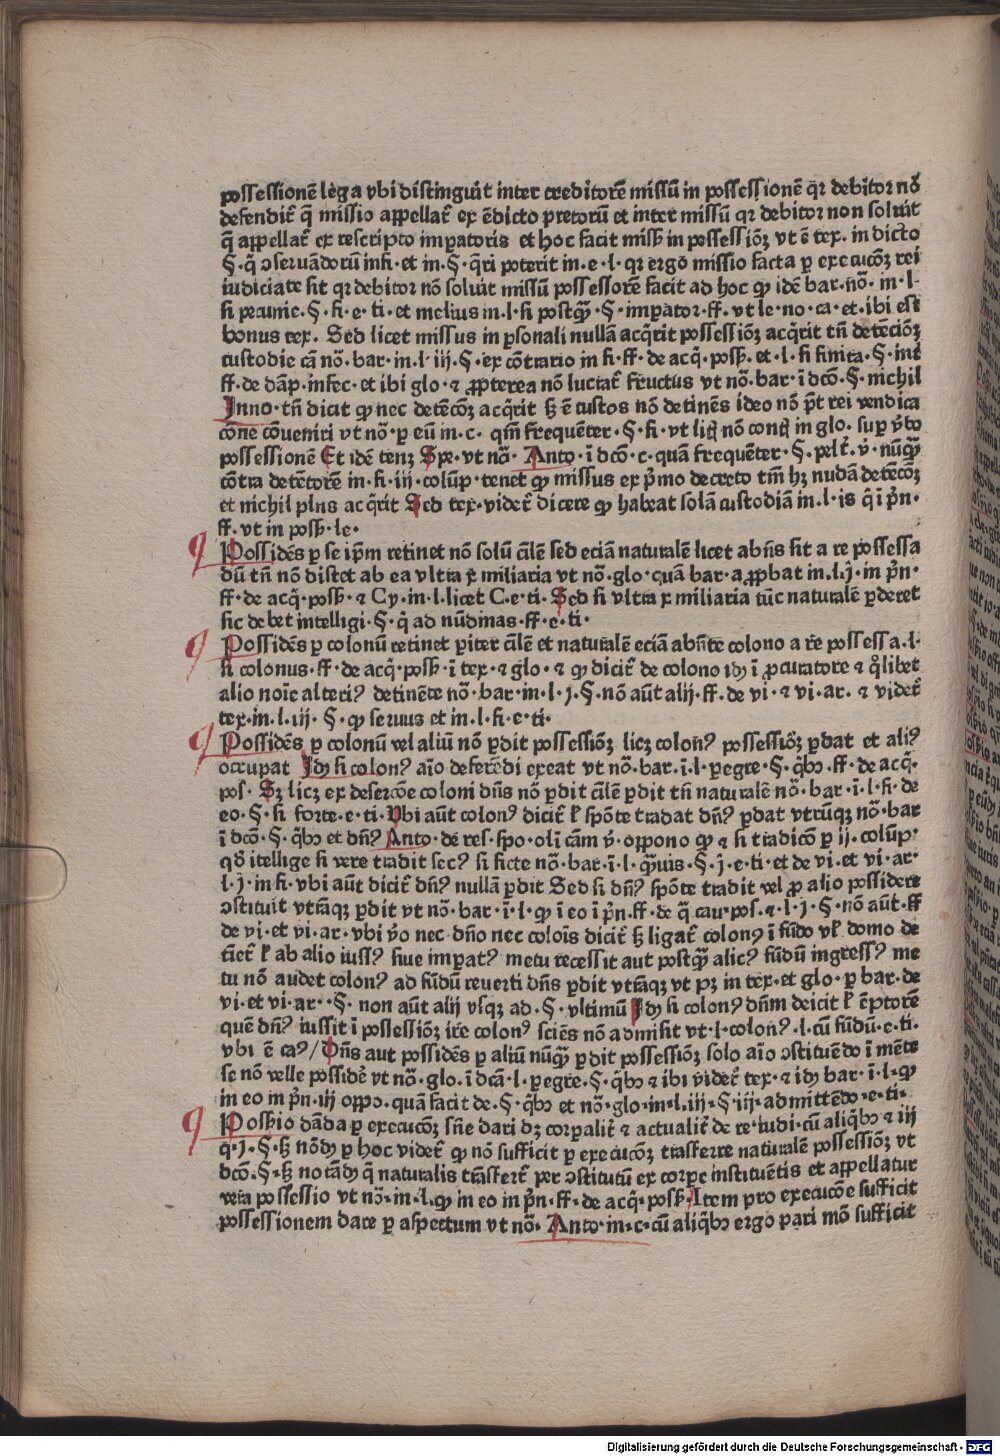 possessionē lega vbi distinguit inter creditorē missū in possessionē qr debitor nō
defendit̄ q̄ missio appellat̄ ex ēdicto pretorū et inter missū qr debitor non soluit
q̄ appellat̄ ex rescripto imperatoris et hoc facit miss̄ in possessiōꝫ vt ē tex. in dicto
§. q̄ ɔseruādorū infi. et in. §. q̄ri poterit in. e. l. qr ergo missio facta ꝑ execucōꝫ rei
iudicate fit qr debitor nō soluit missū possessorē facit ad hoc ꝙ idē bar. nō. in. l.
si pecunie. §. fi. e. ti. et melius in. l. si postq̄ꝫ. §. imperator. ff. vt le. no. ca. et. ibi est
bonus tex. Sed licet missus in ꝑsonali nullā acq̄rit possessiōꝫ acq̄rit tn̄ detēciōꝫ
custodie cā nō. bar. in. l. iij. §. ex cōtrario in fi. ff. de acq̄. poss̄. et. l. si finita. §. int̄
ff. de dāp. infec. et ibi glo. ⁊ ꝓpterea nō lucrat̄ fructus vt nō. bar. ī dcō. §. nichil
Inno. tn̄ dicit ꝙ nec detēcōꝫ acq̄rit sꝫ ē custos nō detinēs ideo nō pt̄ rei vendica
cōne cōueniri vt nō. ꝑ eū in. c. qm̄ frequēter. §. fi. vt liḡ nō contꝭ in glo. suꝑ v̄bo
possessionē Et idē tenꝫ Spe. vt nō. Anto. ī dcō. c. quā frequēter. §. pelt̄. v̄. nūq̄ꝫ
cōtra detētorē in. fi. iij. colūp. tenet ꝙ missus ex p̄mo decreto tm̄ hꝫ nudā detēcōꝫ
et nichil plus acq̄rit Sed tex. videt̄ dicere ꝙ habeat solā custodiā in. l. is q̄ ī pn̄.
ff. vt in poss̄. le.
Possidēs ꝑ se ipm̄ retinet nō solū cīlē sed eciā naturalē licet abn̄s sit a re possessa
dū tn̄ nō distet ab ea vltra x miliaria vt nō. glo. quā bar. aꝓbat in. l. j. in pn̄.
ff. de acq̄. poss̄. ⁊ Cy. in. l. licet C. e. ti. Sed si vltra x miliaria tūc naturalē ꝑderet
sic debet intelligi. §. q̄ ad nūdinas. ff. e. ti.
Possidēs ꝑ colonū retinet ꝑiter cīlē et naturalē eciā abn̄te colono a re possessa. l.
si colonus. ff. de acq̄. poss̄. ī tex. ⁊ glo. ⁊ ꝙ dicit̄ de colono idꝫ ī ꝓcuratore ⁊ q̊libet
alio noīe alteriꝰ detinēte nō. bar. in. l. j. §. nō aūt alij. ff. de vi. ⁊ vi. ar. ⁊ videt̄
tex. in. l. iij. §. ꝙ seruus et in. l. fi. e. ti.
Possidēs ꝑ colonū vel aliū nō ꝑdit possessiōꝫ licꝫ colonꝰ possessiōꝫ ꝑdat et aliꝰ
occupat Idꝫ si colonꝰ aīo deserēdi exeat vt nō. bar. ī. l. ꝑegre. §. q̄bꝰ. ff. de acq̄.
pos. Sꝫ licꝫ ex desercōe coloni dn̄s nō ꝑdit cīlē ꝑdit tn̄ naturalē nō. bar. ī. l. si. de
eo. §. si forte. e. ti. Vbi aūt colonꝰ dicit̄ ł spōte tradat dn̄ꝰ ꝑdat vtrūqꝫ nō. bar
ī dcō. §. q̄bꝰ et dn̄ꝰ Anto. de res. spo. olī cām v̄. oppono ꝙ ⁊ si tradicō ꝑ ij. colūp.
qd̄ itellige si vere tradit secꝰ si ficte nō. bar. ī. l. q̄ꝫuis. §. j. e. ti. et de vi. et vi. ar.
l. j. in fi. vbi aūt dicit̄ dn̄ꝰ nullā ꝑdit Sed si dn̄ꝰ spōte tradit vel ꝓ alio possidere
ɔstituit vtrāqꝫ ꝑdit vt nō. bar. ī. l. ꝙ ī eo ī pn̄. ff. de q̄ cau. pos. ⁊. l. j. §. nō aūt. ff
de vi. et vi. ar. vbi v̄o nec dn̄o nec coloīs dicit̄ sꝫ ligat̄ colonꝰ ī fūdo vł domo de
tiet̄ ł ab alio iussꝰ siue imꝑatꝰ metu recessit aut postq̄ꝫ alicꝰ fūdū ingressꝰ me
tu nō audet colonꝰ ad fūdū reuerti dn̄s ꝑdit vtrāqꝫ vt pꝫ in tex. et glo. ꝑ bar. de
vi. et vi. ar.. §. non aūt alij vsqꝫ ad. §. vltimū Idꝫ si colonꝰ dn̄m deicit ł ēptorē
quē dn̄ꝰ iussit ī possessiōꝫ ire colonꝰ sciēs nō admisit vt. l. colonꝰ. l. cū fūdū. e. ti.
vbi ē caꝰ/ Dn̄s aut possidēs ꝑ aliū nūq̄ꝫ ꝑdit possessiōꝫ solo aīo ɔstituēdo ī mēte
se nō velle possidē vt nō. glo. ī dcā. l. ꝑegre. §. q̄bꝰ ⁊ ibi videt̄ tex. ⁊ idꝫ bar. ī. l. ꝙ
in eo in pn̄. iij oppo. quā facit de. §. q̄bꝰ et nō. glo. in. l. iij. §. iij. ad mittēdo. e. ti.
Possessio dāda ꝑ execucōꝫ sn̄e dari dꝫ corꝑalit̄ ⁊ actualit̄ de re. iudi. cū aliq̄bꝰ ⁊ iij
q. j. §. sꝫ nōdꝫ ꝑ hoc videt̄ ꝙ nō sufficit ꝑ execucōꝫ trāsferre naturalē possessiōꝫ vt
dcō. §. sꝫ notādꝫ q̄ naturalis trāsfert̄ per ɔstitutū ex corꝑe instituētis et appellatur
vera possessio vt nō. in. l. ꝙ in eo in pn̄. ff. de acq̄. poss̄. Item pro execucōe sufficit
possessionem dare ꝑ aspectum vt nō. Anto. in. c. cū aliq̄bꝰ ergo pari mō sufficit
Digitalisierung gefördert durch die Deutsche Forschungsgemeinschaft - DFG